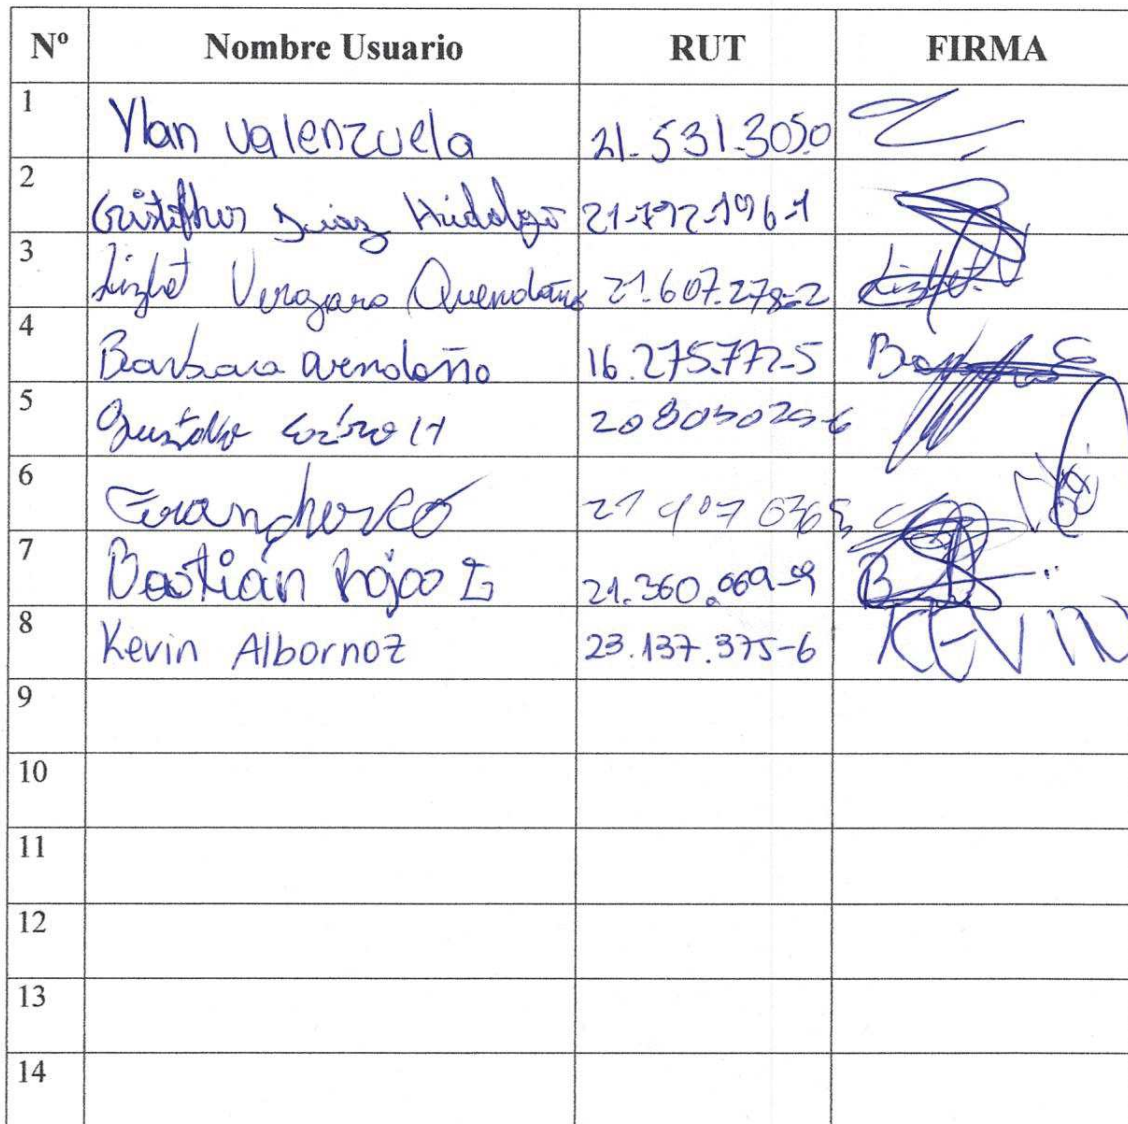 Nº Nombre Usuario RUT FIRMA
1 Ylan Valenzuela 21.531.305-0
2 Cristofher Diaz Hidalgo 21-792-196-1
3 Lizbet Vergara Avendaño 21.607.278-2 Lizbet
4 Barbara Avendaño 16.275.772-5
5 Gustavo
6
7 Bastián Rojas 21.360.069-9
8 Kevin Albornoz 23.137.375-6 KEVIN
9
10
11
12
13
14